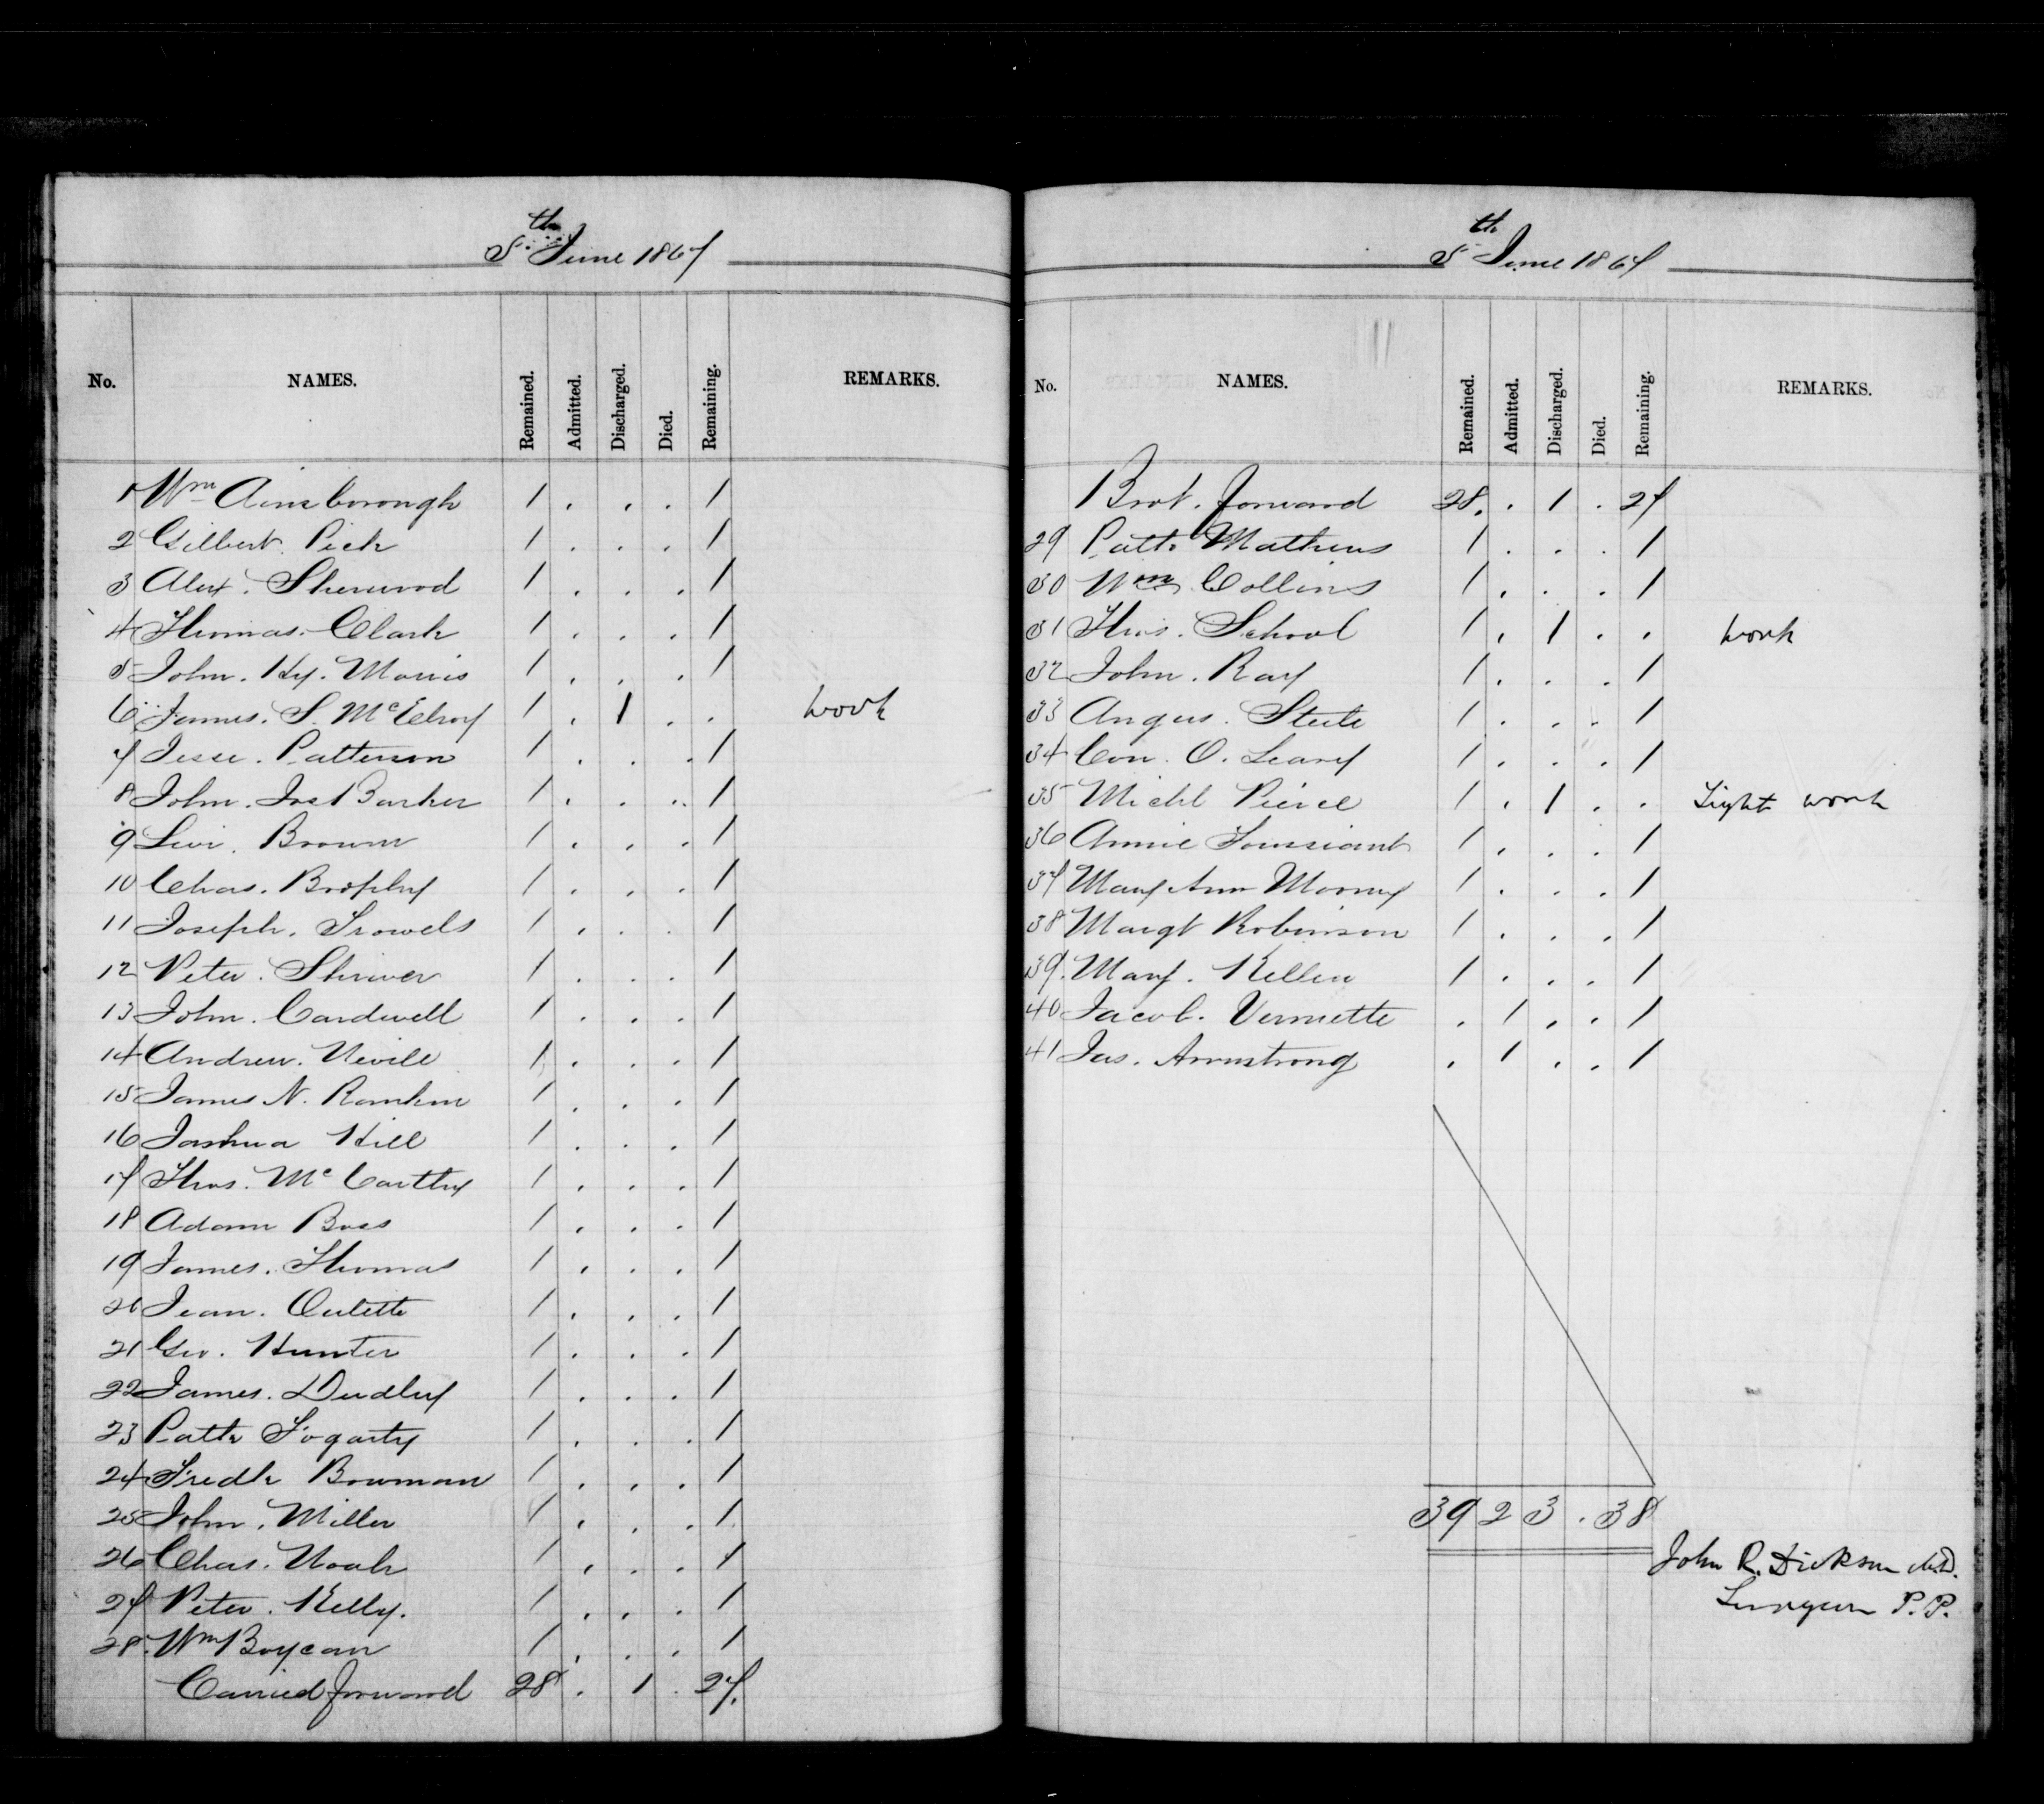 5th June 1867
No. NAMES. Remained. Admitted. Discharged. Died. Remaining. REMARKS.
1 Wm Ainsborough 1 . . . 1
2 Gilbert. Pick 1 . . . 1
3 Alex. Sherwood 1 . . . 1
4 Thomas. Clark 1 . . . 1
5 John. Hy. Morris 1 . . . 1
6 James. S. McElroy 1 . 1 . . work
7 Jesse. Patterson 1 . . . 1
8 John. Jos Barker 1 . . . 1
9 Levi. Brown 1 . . . 1
10 Chas. Brophy 1 . . . 1
11 Joseph. Trowels 1 . . . 1
12 Peter. Shriver 1 . . . 1
13 John. Cardwell 1 . . . 1
14 Andrew. Nevile 1 . . . 1
15 James N. Rankin 1 . . . 1
16 Joshua Hill 1 . . . 1
17 Thos. McCarthy 1 . . . 1
18 Adam Boss 1 . . . 1
19 James. Thomas 1 . . . 1
20 Jean. Oulette 1 . . . 1
21 Geo. Hunter 1 . . . 1
22 James. Dudley 1 . . . 1
23 Patk Fogarty 1 . . . 1
24 Fredk Bowman 1 . . . 1
25 John. Miller 1 . . . 1
26 Chas. Noah 1 . . . 1
27 Peter. Kelly. 1 . . . 1
28. Wm Boycan 1 . . . 1
Carried forward 28 . 1 . 27.
5th June 1867
No. NAMES. Remained. Admitted. Discharged. Died. Remaining. REMARKS.
Brot. forward 28. . 1 . 27
29 Patk Mathews 1 . . . 1
30 Wm Collins 1 . . . 1
31 Thos. School 1 . 1 . . work
32 John. Ray 1 . . . 1
33 Angus. Steele 1 . . . 1
34 Con. O. Leary 1 . . . 1
35 Michl Pierce 1 . 1 . . Light work
36 Annie Toussiant 1 . . . 1
37 Mary Ann Mooney 1 . . . 1
38 Margt Robinson 1 . . . 1
39. Mary. Kellen 1 . . . 1
40 Jacob. Vermette . 1 . . 1
41 Jas. Armstrong . 1 . . 1
39 2 3 . 38
John R. Dickson M.D.
Surgeon P.P.